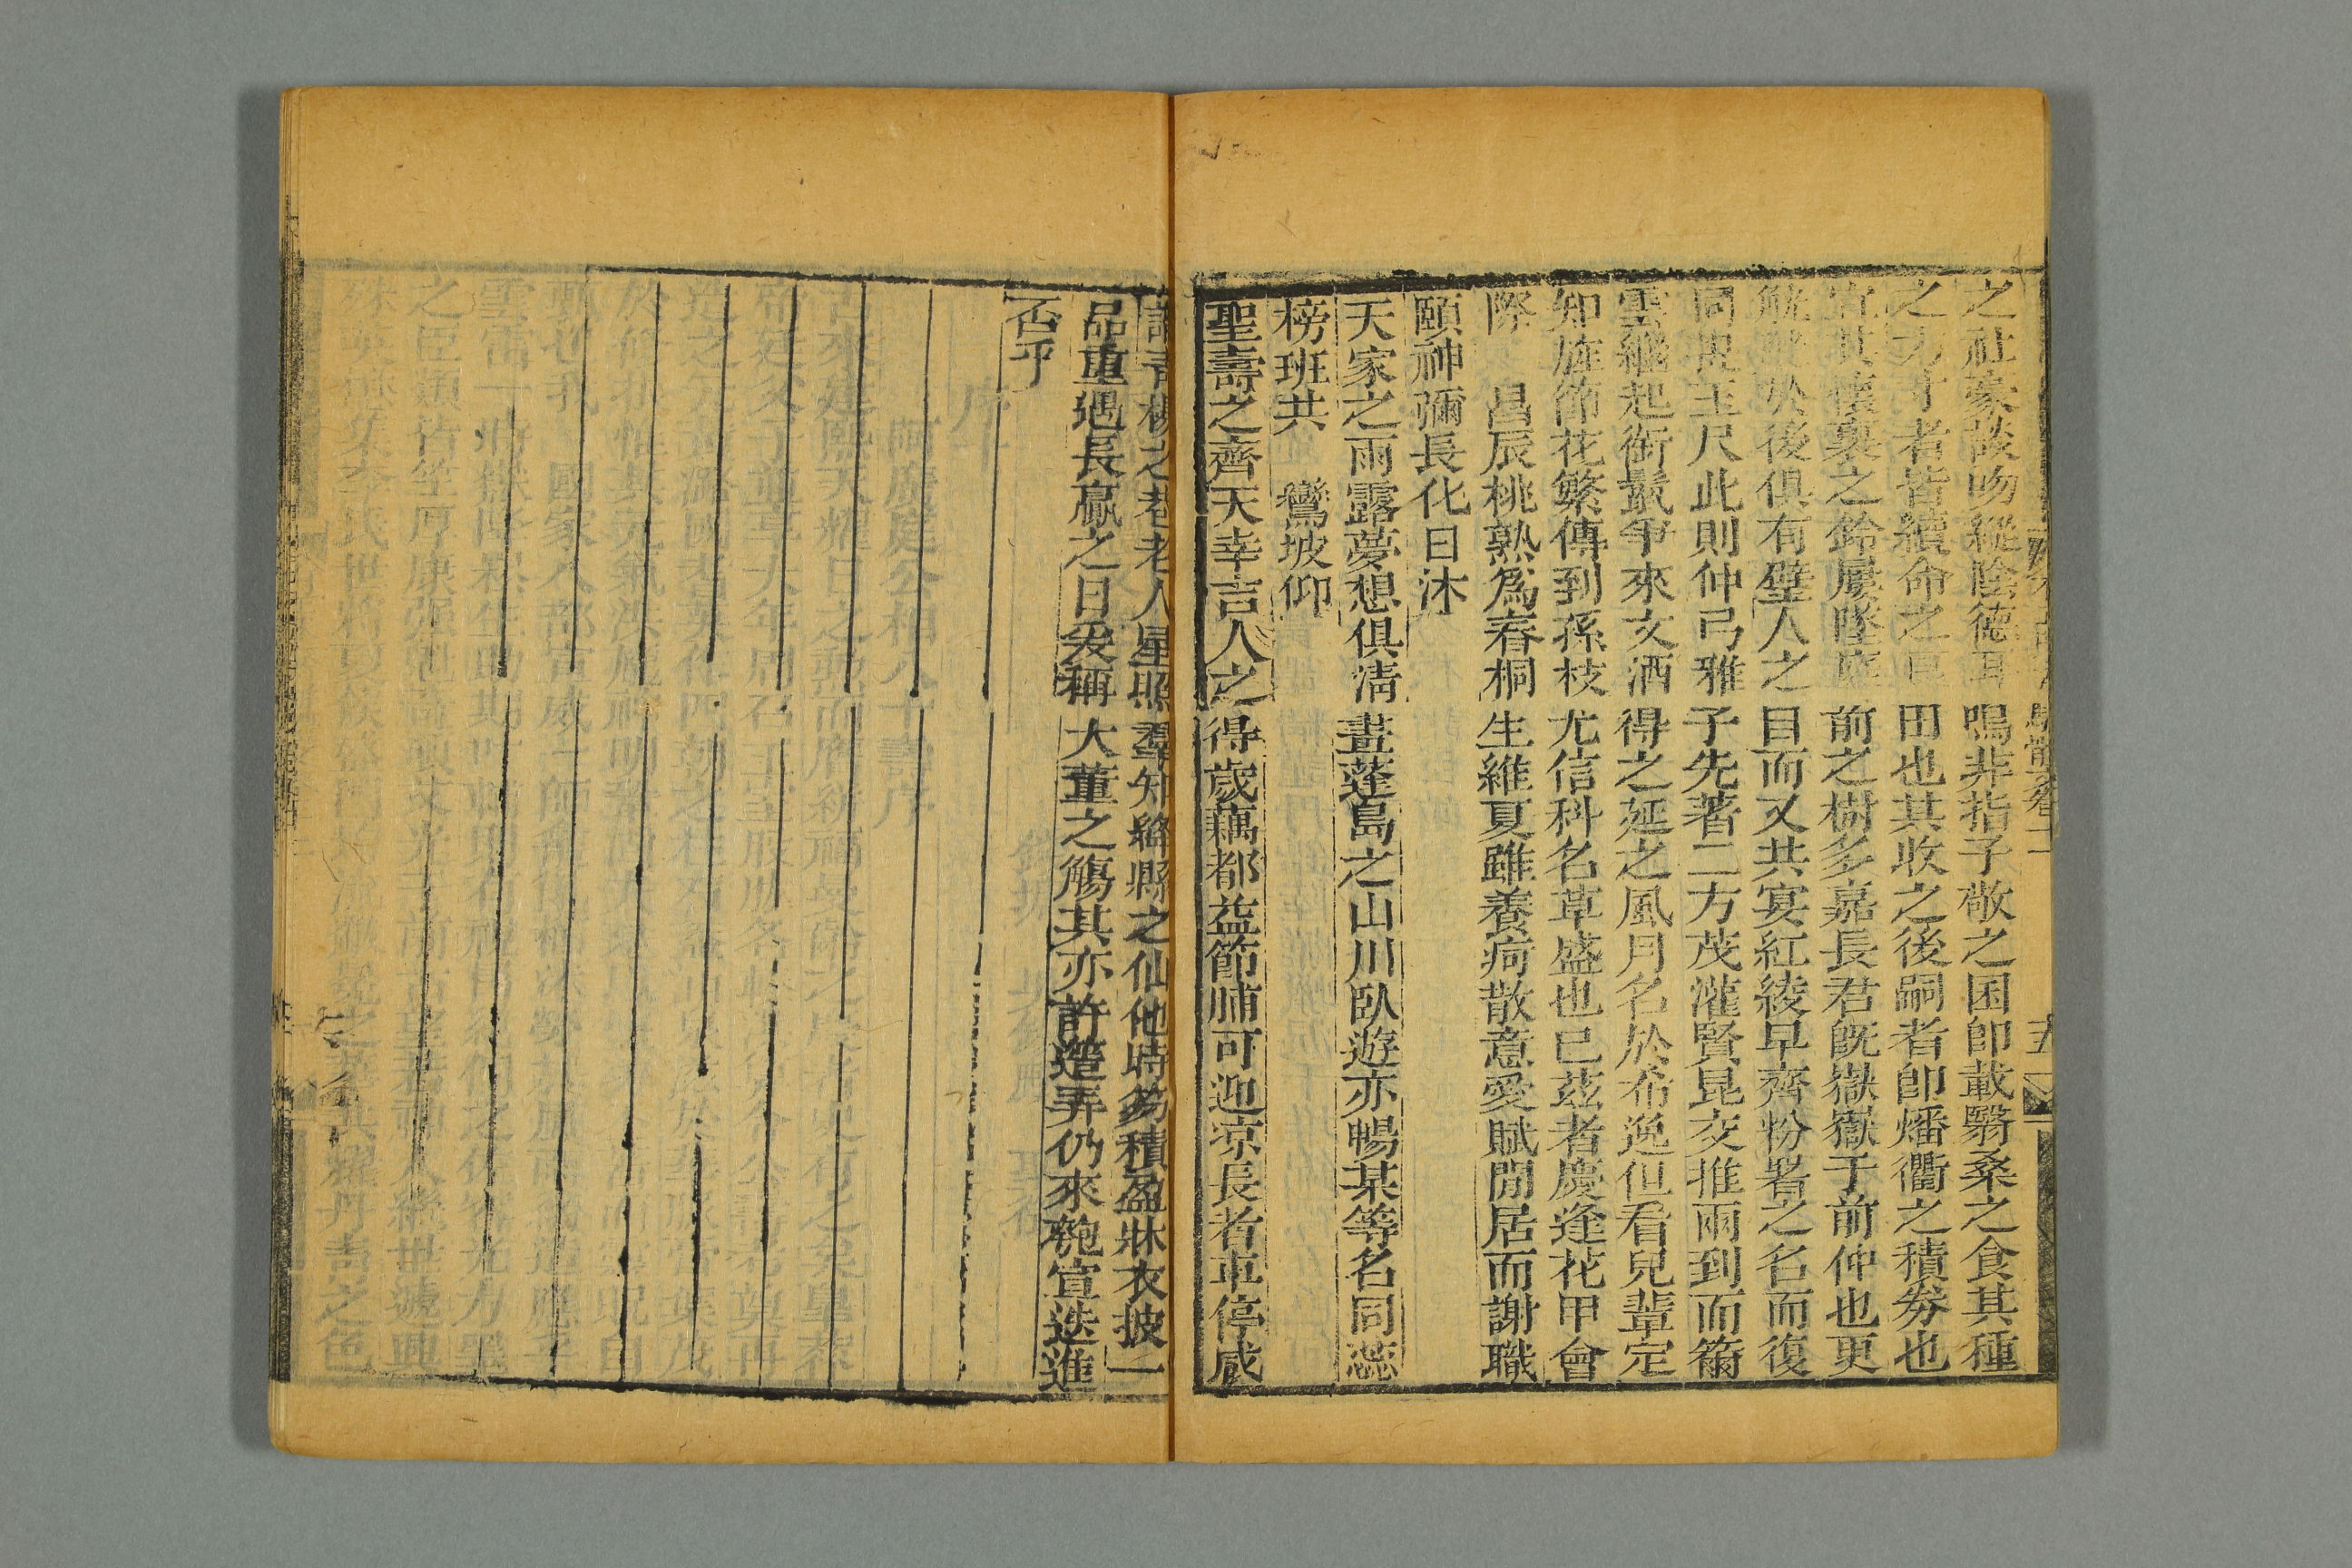 之社豪談吻縱陰德耳鳴非指子敬之囷卽載翳桑之食其種
之乃才者皆續命之 田也其收之後嗣者卽燔衢之積劵也
宜其懷裹之鈴屢墜庭前之樹多嘉長君旣嶽嶽于前仲也更
觥觥於後俱有璧人之目而又共宴紅綾早齊粉署之名而復
同 玉尺此則仲弓雅子先著二方茂灌賢昆交推兩到而籋
雲繼起銜鬛爭來文酒得之延之風月名於希逸但看兒輩定
知旌節花繁傳到孫枝尤信科名草盛也已茲者慶逢花甲會
際 昌辰桃熟爲春桐生維夏雖養疴散意愛賦閒居而謝職
頤神彌長化日沐
天家之雨露夢想俱淸畫蓬島之山川臥遊亦暢某等名同蕊
榜班共 鸞坡仰
聖壽之齊天幸吉人之得歲藕都益節脯可迎凉長者車停咸
青楊之巷老人星照羣知絳縣之仙他時笏積盈牀衣披一
品重遇長贏之日爰稱大董之觴其亦許 弄仍來 宣迭進
否乎
五